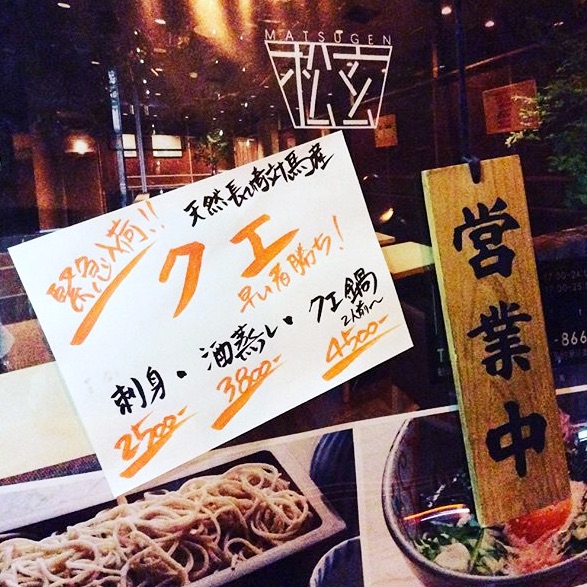 MATSUGEN
松玄
緊急入荷!!
天然長崎対馬産
クエ
早い者勝ち!
刺身・酒蒸し・クエ鍋
2人前〜
2500- 3800- 4500-
営業中
-866